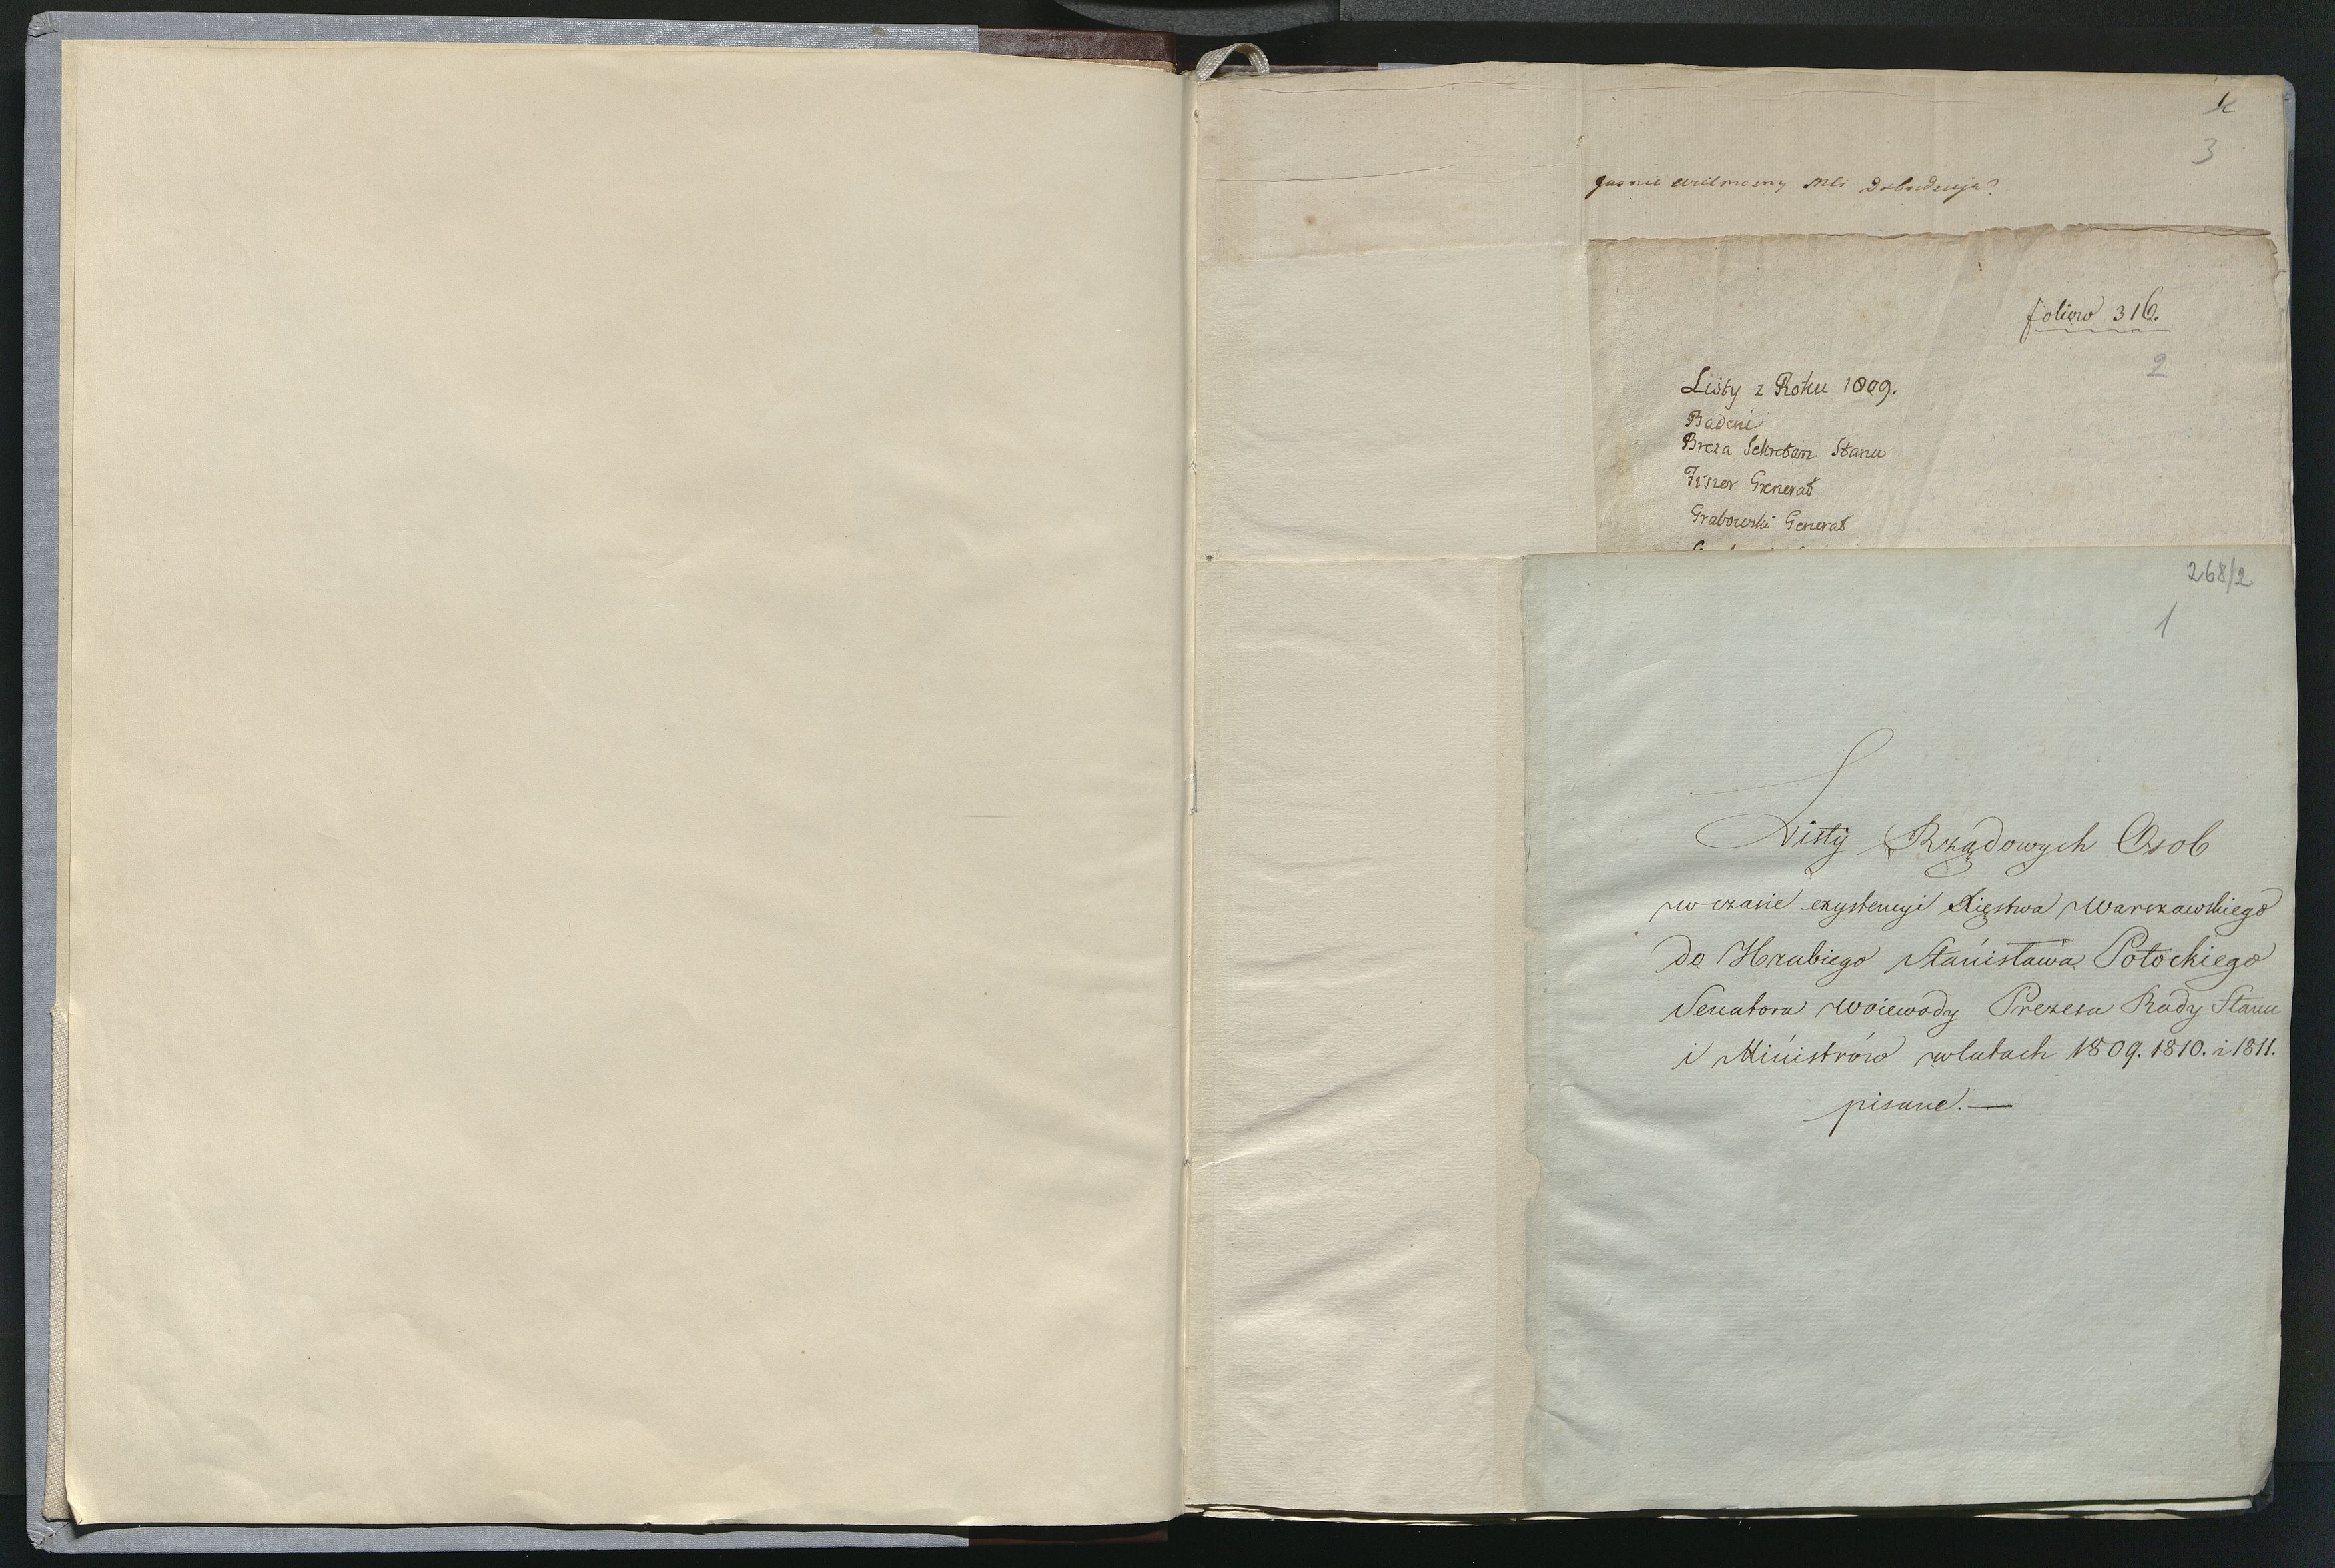 1
3
Jaśnie Wielmożny Mści Dobrodzieju?
foliow 316.
2
Listy z Roku 1809.
Badeni
Breza Sekretarz Stanu
Fiszer Generał
Grabowski Generał
268/2
1
Listy Rządowych Osob
w czasie exystencyi Xięstwa Warszawskiego
do Hrabiego Stanisława Potockiego
Senatora Woiewody Prezesa Rady Stanu
i Ministrów w latach 1809. 1810. i 1811.
pisane.—